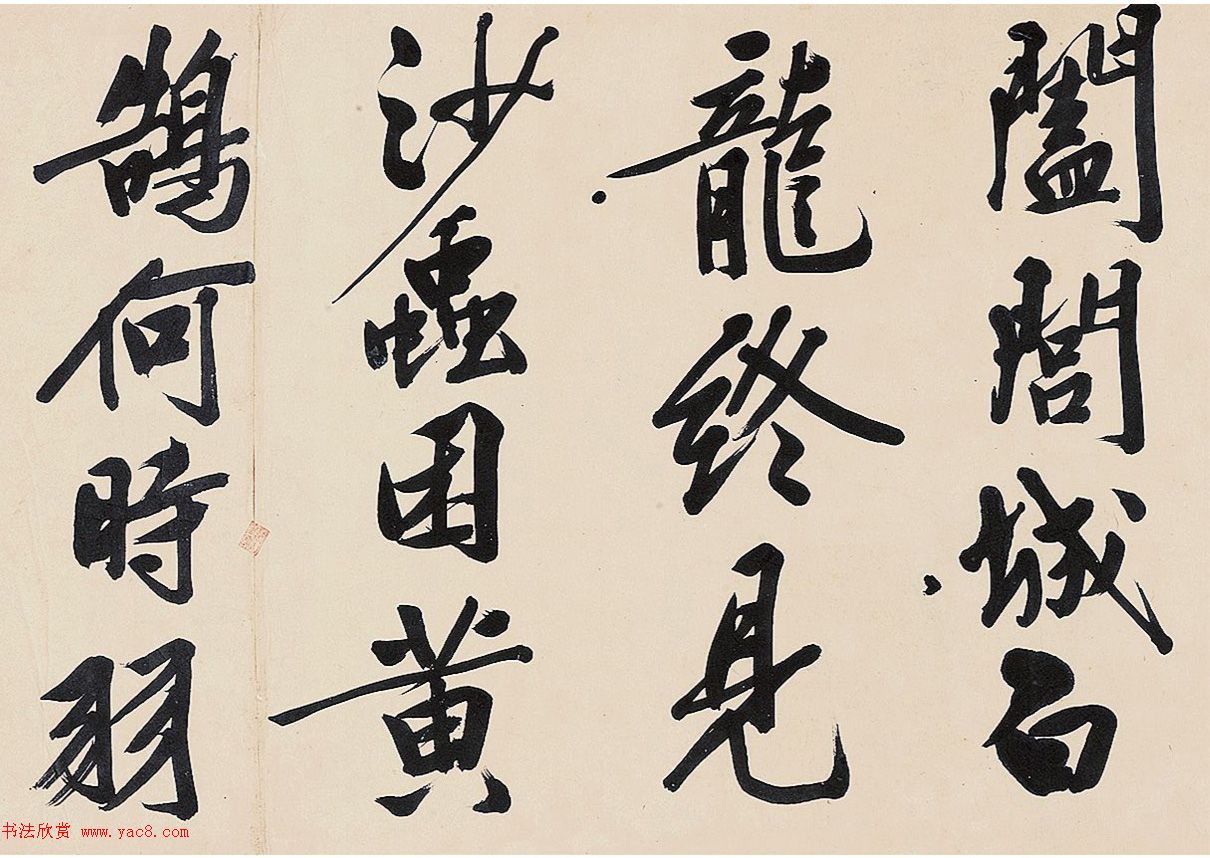 闔閭城白
龍終見
沙蟲困黃
鵠何時羽
书法欣赏 www.yac8.com